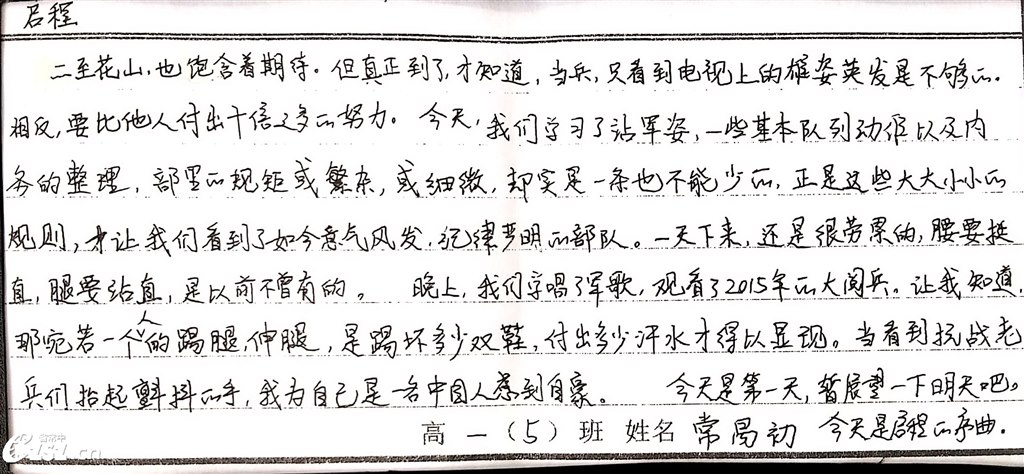 启程
二至花山,也饱含着期待。但真正到了,才知道,当兵,只看到电视上的雄姿英发是不够的。
相反,要比他人付出十倍之多的努力。 今天,我们学习了站军姿,一些基本队列动作以及内
务的整理,部里的规矩或繁杂,或细微,却实是一条也不能少的,正是这些大大小小的
规则,才让我们看到了如今意气风发,纪律严明的部队。一天下来,还是很劳累的,腰要挺
直,腿要站直,是以前不曾有的。 晚上,我们学唱了军歌,观看了2015年的大阅兵。让我知道,
那宛若一个人的踢腿,伸腿,是踢坏多少双鞋,付出多少汗水才得以显现。当看到抗战老
兵们抬起颤抖的手,我为自己是一名中国人感到自豪。 今天是第一天,暂展望一下明天吧。
高一(5)班 姓名 常局初 今天是启程的序曲.